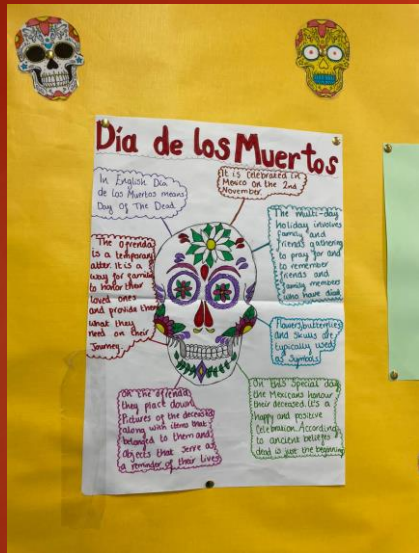 Día de los Muertos
In English Día
de los Muertos means
Day Of The Dead.
It is celebrated in
Mexico on the 2nd
November.
The multi-day
holiday involves
family and
friends gathering
to pray for and
to remember
friends and
family members
who have died.
The ofrenda
is a temporary
alter. It is a
way for families
to honor their
loved ones
and provide them
what they
need on their
Journey.
Flowers, butterflies
and skulls are
typically used
as Symbols
On the ofrenda
they place down
Pictures of the deceased
along with items that
belonged to them and
objects that serve as
a reminder of their lives
On this special day
the Mexicans honour
their deceased. It's a
happy and positive
Celebration. According
to ancient beliefs
dead is just the beginning